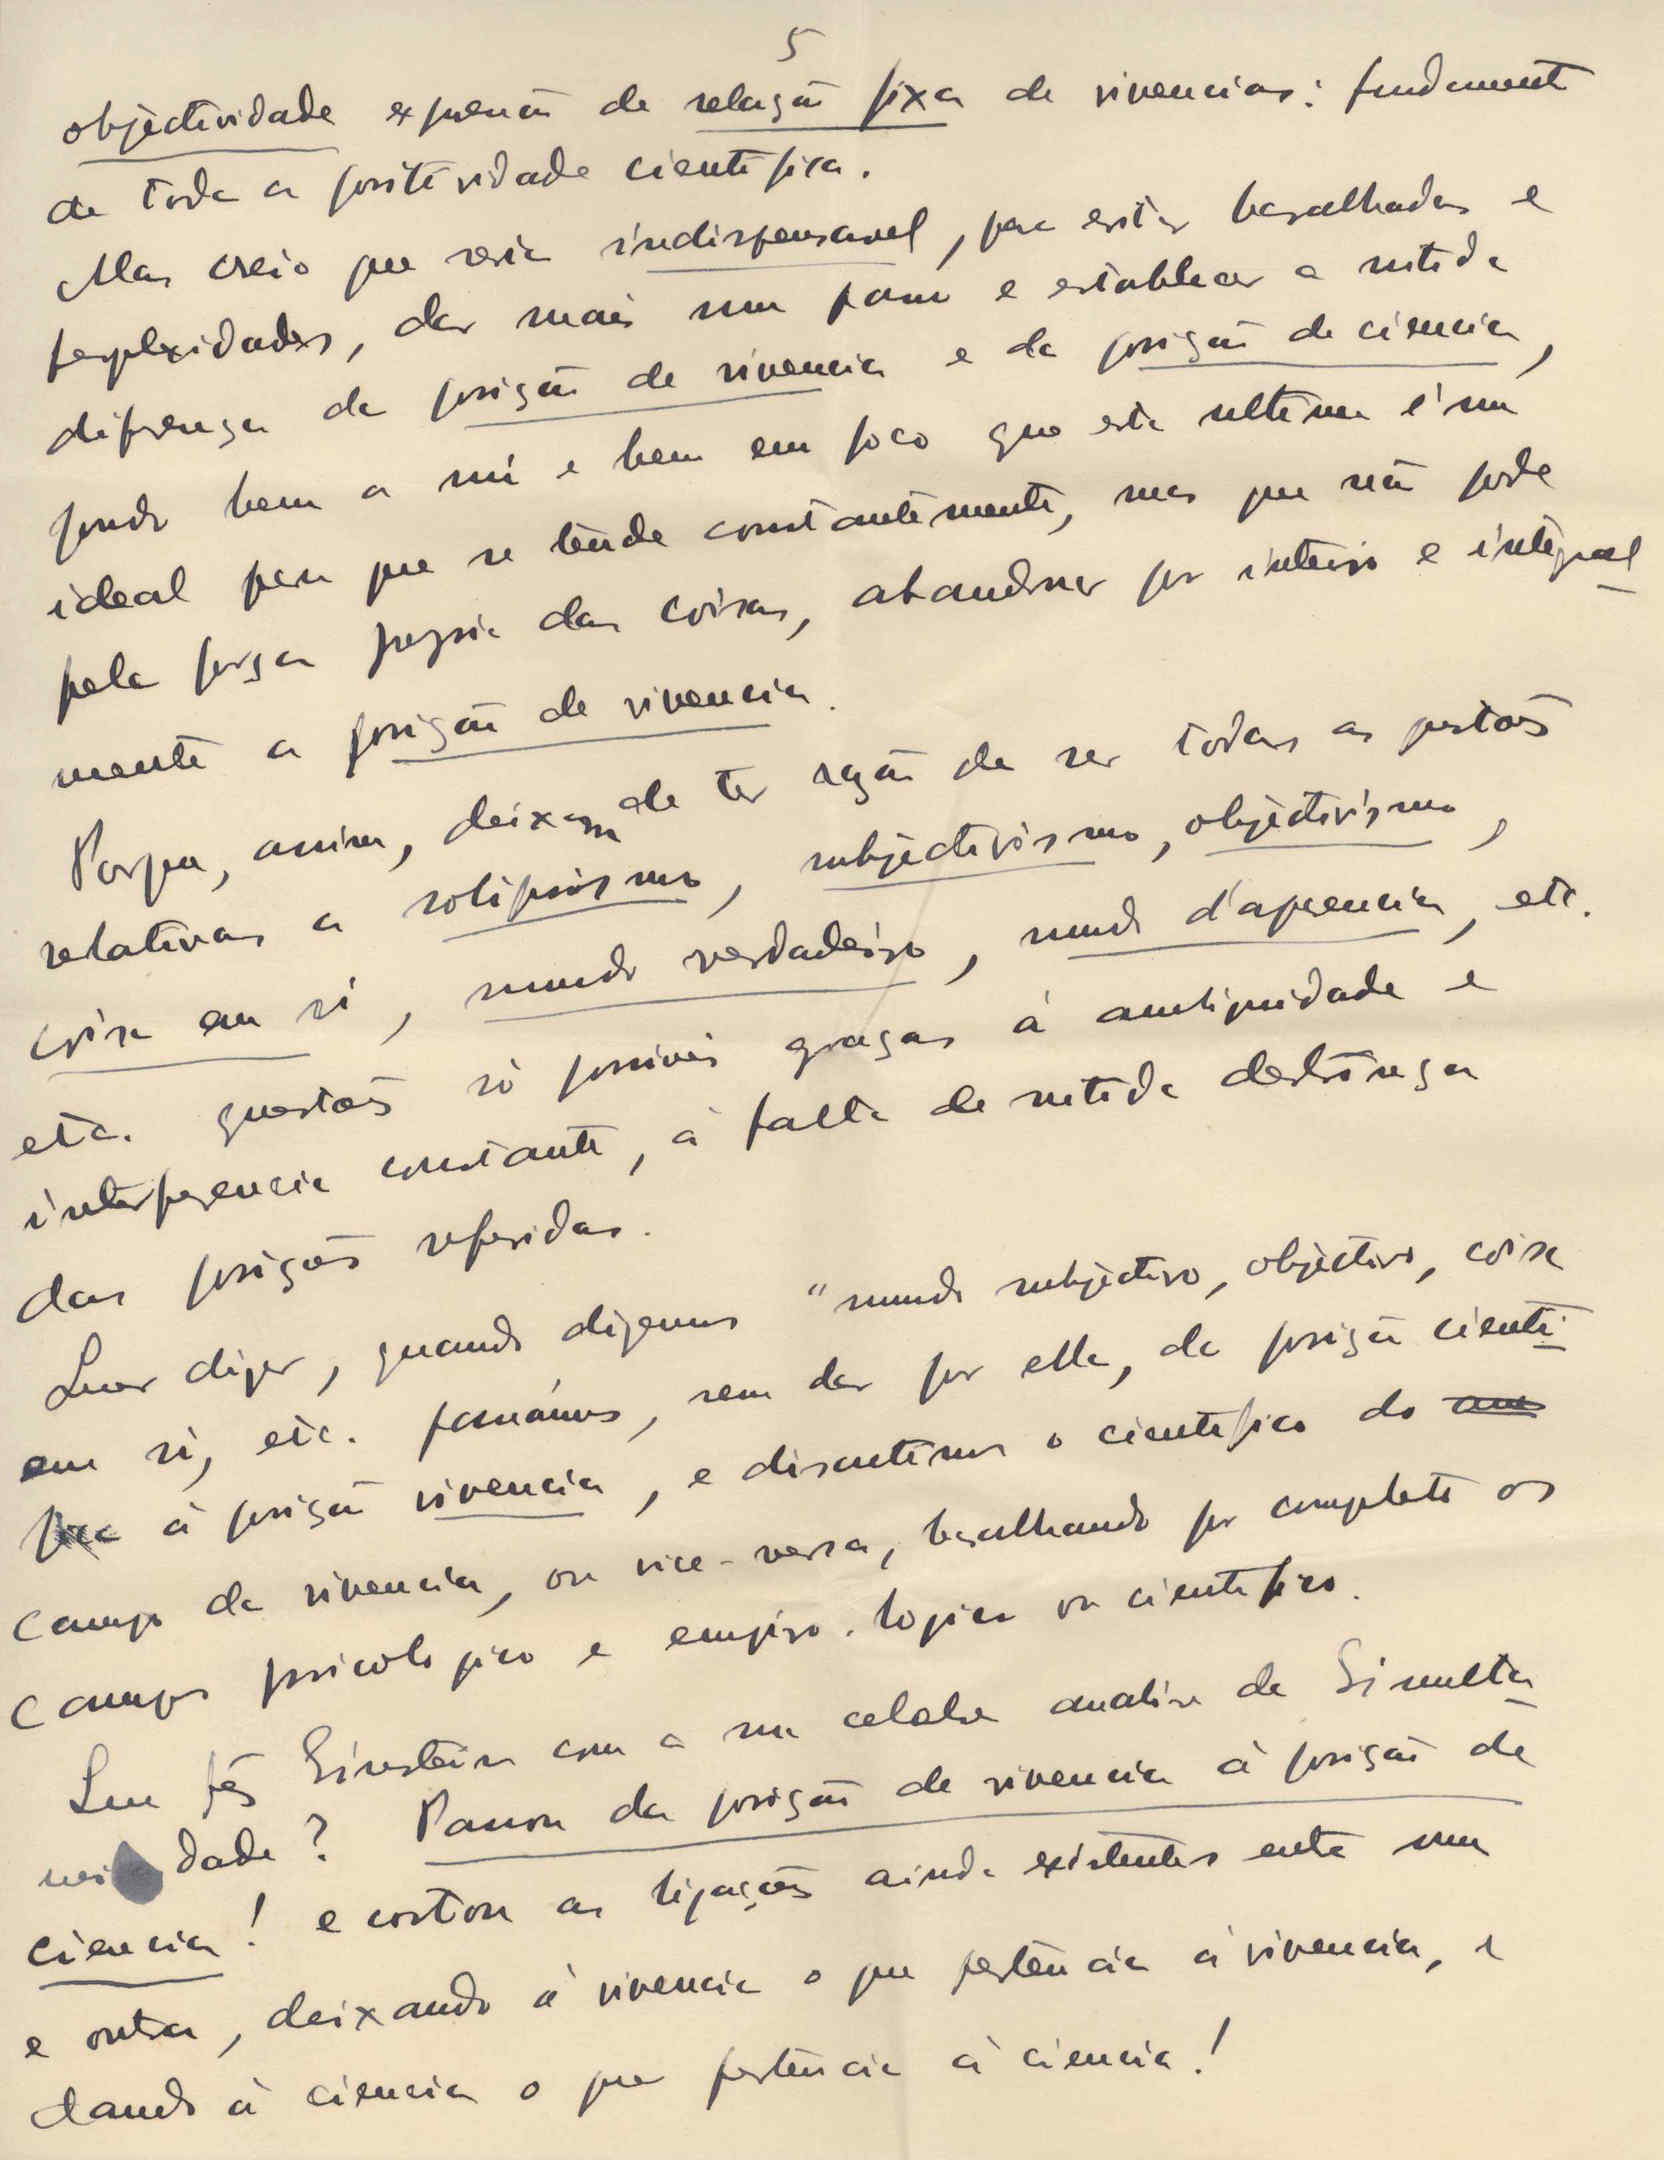 5
objectividade expressão de relação fixa de vivencias: fundamento
de toda a positividade cientifica.
Mas creio que seria indispensavel, para evitar baralhadas e
perplexidades, dar mais um passo e establecer a nitida
diferença da posição de vivencia e da posição de ciencia,
pondo bem a nú e bem em foco que esta ultima é um
ideal para que se tende constantemente, mas que não pode
pela força propria das coisas, abandonar por inteiro e integral
mente a posição de vivencia.
Porque, assim, deixam de ter razão de ser todas as questões
relativas a solipsismo, subjectivismo, objectivismo,
coisa em si, mundo verdadeiro, mundo d'aparencia, etc.
etc. questões só possiveis graças á ambiguidade e
interferencia constante, á falta de nitida destrinça
das posições referidas.
Quer dizer, quando dizemos "mundo subjectivo, objectivo, coisa
em si, etc. passámos, sem dar por ella, da posição cienti-
fica á posição vivencia, e discutimos o cientifico do
campo da vivencia, ou vice-versa, baralhando por completo os
campos psicologico e empiro-logico ou cientifico.
Que fez Einstein com a sua celebre analise da Simulta
neidade? Passou da posição de vivencia á posição de
ciencia! e cortou as ligações ainda existentes entre uma
e outra, deixando á vivencia o que pertencia á vivencia, e
dando á ciencia o que pertencia á ciencia!